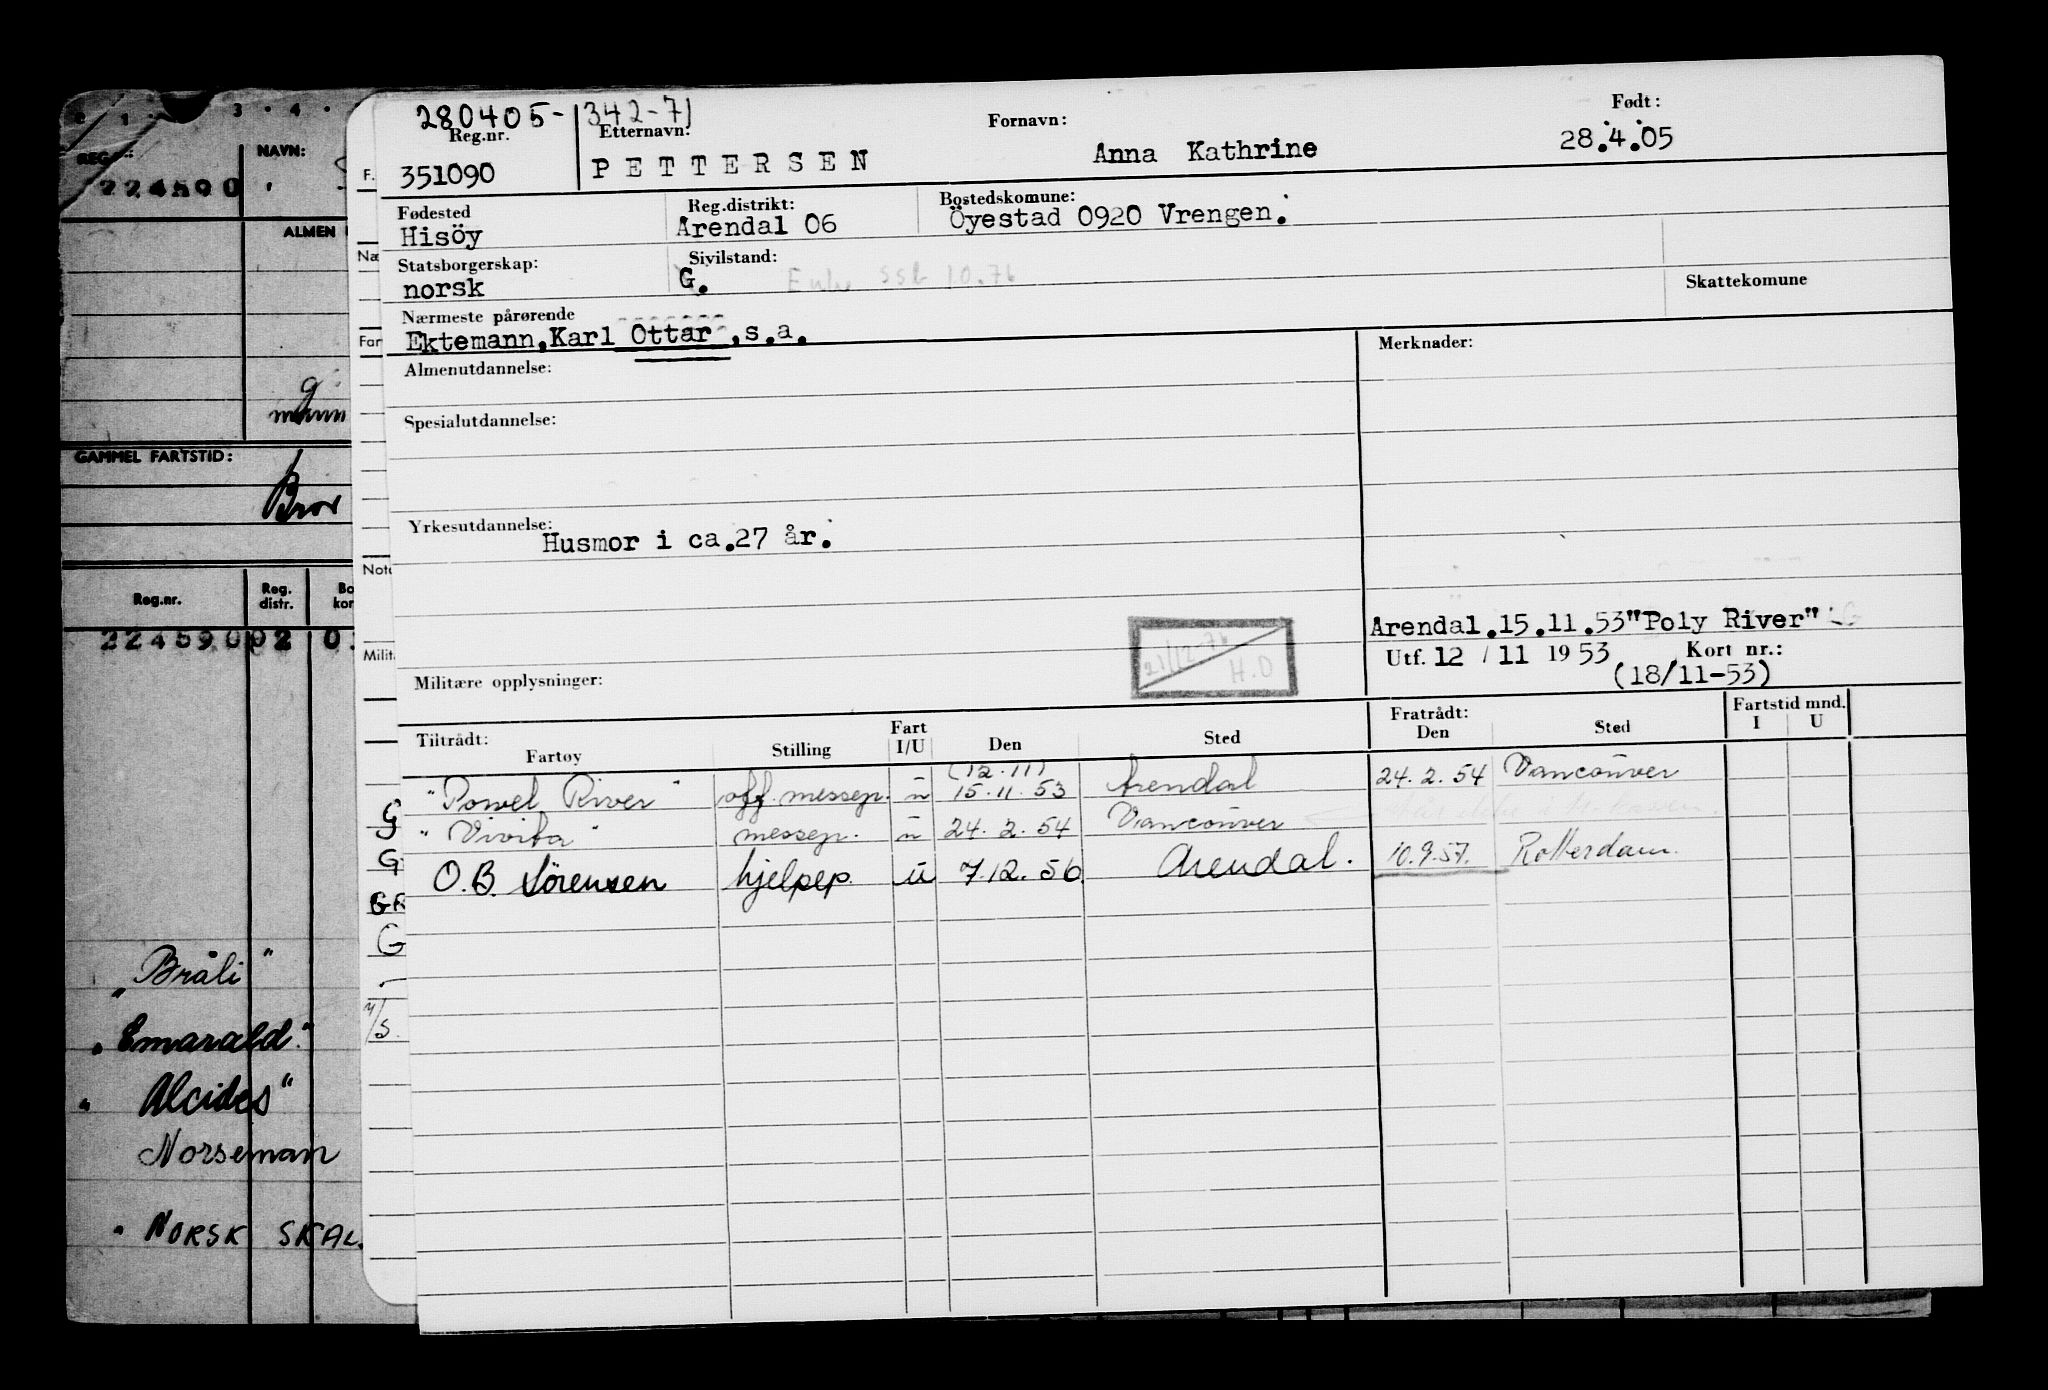 280405- 342-71
Reg.nr. Etternavn: Fornavn: Født:
351090 PETTERSEN Anna Kathrine 28.4.05
Fødested Reg.distrikt: Bostedskomune:
Hisöy Arendal 06 Öyestad 0920 Vrengen.
Statsborgerskap: Sivilstand: Skattekomune
norsk G. Enke 10.76
Nærmeste pårørende
Ektemann,Karl Ottar ,s.a.
Almenutdannelse: Merknader:
Spesialutdannelse:
Yrkesutdannelse:
Husmor i ca.27 år.
Arendal.15.11.53"Poly River"
21/12-76 H.O
Utf. 12 / 11 19 53 Kort nr.:
(18/11-53)
Militære opplysninger:
Tiltrådt: Fart Fratrådt: Fartstid mnd.
Fartøy Stilling I/U Den Sted Den Sted I U
(12.11)
"Powel River" off. messep. u 15.11.53 Arendal 24.2.54 Vancouver
"Vivita" messep. u 24.2.54 Vancouver
O.B. Sörensen hjelpep. u 7.12.56 Arendal. 10.9.57. Rotterdam.
1 3 4
REG. NR.: NAVN:
224590
ALMEN
mann
GAMMEL FARTSTID:
Bror
Reg.nr. Reg. distr. Bo kor
224590 02 0
"Bråli"
"Emarald."
"Alcides"
Norseman
"NORSK SKAL.
F.
Næ
Far
Note
Milit
G
G
GR
G
M/S.